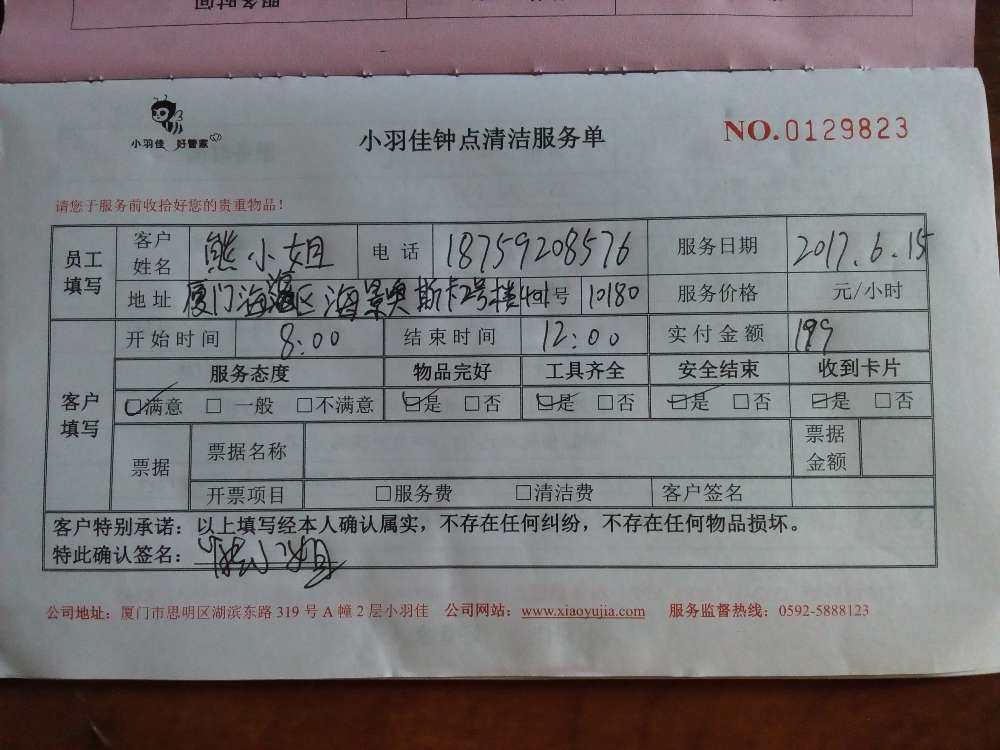 服务时间
小羽佳 好管家
小羽佳钟点清洁服务单
NO.0129823
请您于服务前收拾好您的贵重物品！
员工填写 客户姓名 熊小姐 电话 18759208576 服务日期 2017.6.15
地址 厦门海沧区海景奥斯卡2号楼401号 10180 服务价格 元/小时
客户填写 开始时间 8:00 结束时间 12:00 实付金额 199
服务态度 物品完好 工具齐全 安全结束 收到卡片
☑满意 □一般 □不满意 ☑是 □否 ☑是 □否 ☑是 □否 ☑是 □否
票据 票据名称 票据金额
开票项目 □服务费 □清洁费 客户签名
客户特别承诺：以上填写经本人确认属实，不存在任何纠纷，不存在任何物品损坏。
特此确认签名：熊小姐
公司地址：厦门市思明区湖滨东路 319 号 A 幢 2 层小羽佳 公司网站：www.xiaoyujia.com 服务监督热线：0592-5888123